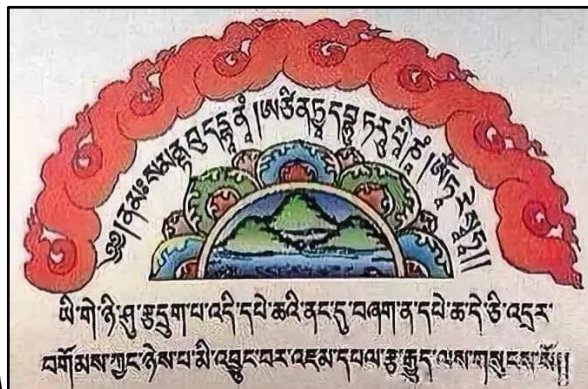 ན་མཿས་མནྟ་བུདྡྷཱ་ནཾ།
ཡི་གེ་ཉི་ཤུ་རྩ་དྲུག་པ་འདི་དཔེ་ཆའི་ནང་དུ་བཞག་ན་དཔེ་ཆ་དེ་ཅི་འདྲར་
བགོམས་ཀྱང་ཉེས་པ་མི་འབྱུང་བར་འཇམ་དཔལ་རྩ་རྒྱུད་ལས་གསུངས་སོ།།